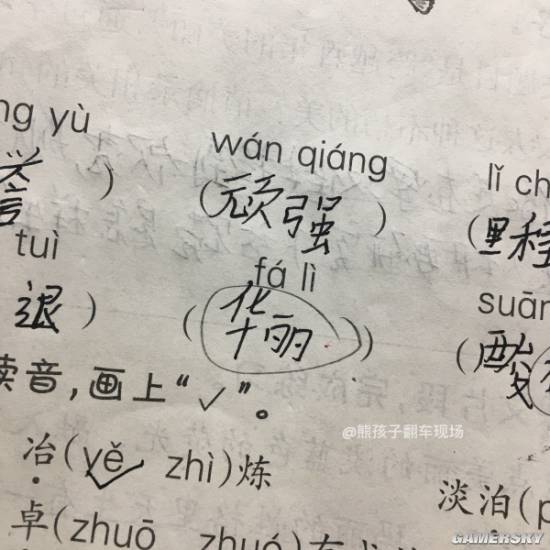 ng yù wán qiáng lǐ ch
誉 ) (顽强) (里程
tuì fá lì suān
退 ) (华丽) (酸
读音,画上“✓”。
@熊孩子翻车现场
冶(yě zhì)炼
淡泊(p
卓(zhuō zhuó)
GAMERSKY